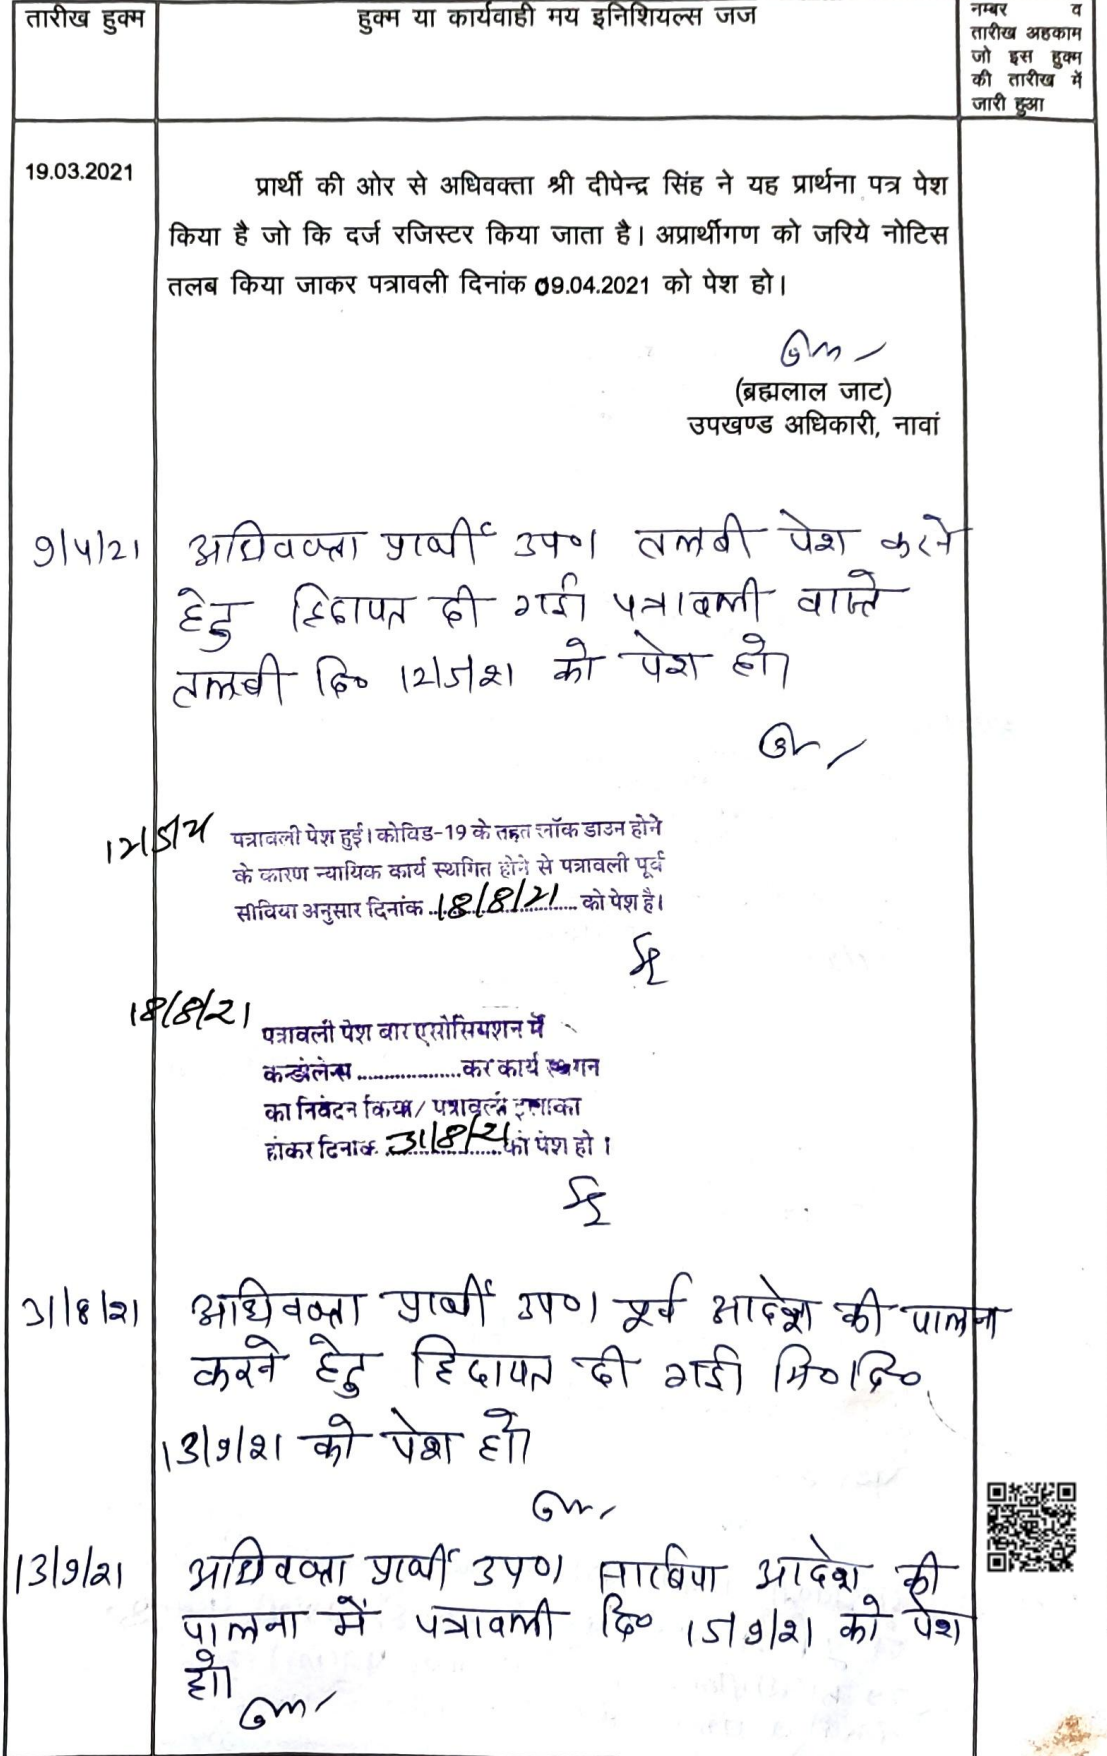 तारीख हुक्म
हुक्म या कार्यवाही मय इनिशियल्स जज
नम्बर व
तारीख अहकाम
जो इस हुक्म
की तारीख में
जारी हुआ
19.03.2021
प्रार्थी की ओर से अधिवक्ता श्री दीपेन्द्र सिंह ने यह प्रार्थना पत्र पेश
किया है जो कि दर्ज रजिस्टर किया जाता है। अप्रार्थीगण को जरिये नोटिस
तलब किया जाकर पत्रावली दिनांक 09.04.2021 को पेश हो।
(ब्रह्मलाल जाट)
उपखण्ड अधिकारी, नावां
9/4/21 अधिवक्ता प्रार्थी उप०। तलबी पेश करने
हेतु हिदायत दी गई। पत्रावली वास्ते
तलबी दि० 12/5/21 को पेश हो।
12/5/21 पत्रावली पेश हुई। कोविड-19 के तहत लॉक डाउन होने
के कारण न्यायिक कार्य स्थगित होने से पत्रावली पूर्व
अनुसार दिनांक 18/8/21 को पेश है।
18/8/21 पत्रावली पेश बार एसोसियशन में
कन्डोलेन्स ..................कर कार्य स्थगन
का निवेदन किया/ पत्रावली
होकर दिनांक 31/8/21 को पेश हो ।
31/8/21 अधिवक्ता प्रार्थी उप०। पूर्व आदेश की पालना
करने हेतु हिदायत दी गई। मि०दि०
13/9/21 को पेश हो।
13/9/21 अधिवक्ता प्रार्थी उप०। आदेश की
पालना में पत्रावली दि० 15/9/21 को पेश
हो।